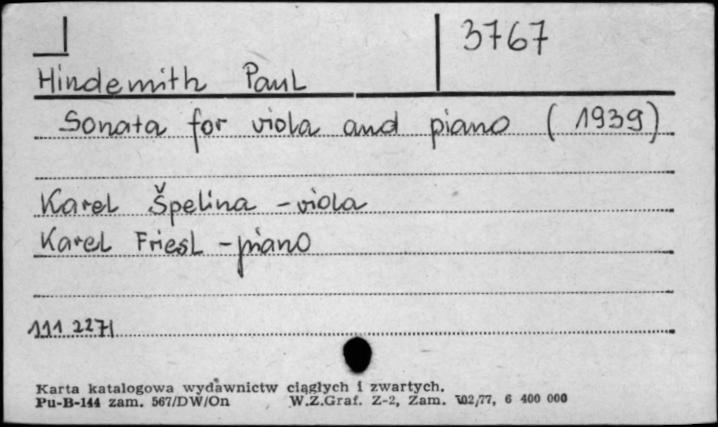 3767
Hindemith Paul
Sonata for viola and piano (1939)
Karel Špelina - viola
Karel Friesl - piano
111 2271
Karta katalogowa wydawnictw ciągłych i zwartych.
Pu-B-144 zam. 567/DW/On W.Z.Graf. Z-2, Zam. 102/77, 6 400 000